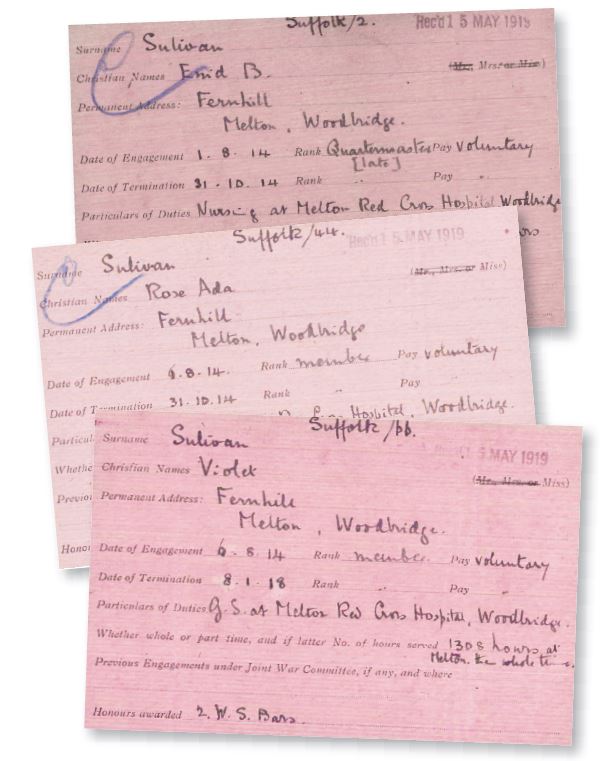 Suffolk/2. Rec'd 15 MAY 1919
Surname Sulivan
Christian Names Enid B. (Mr., Mrs. or Miss)
Permanent Address: Fernhill
Melton, Woodbridge.
Date of Engagement 1. 8. 14 Rank Quartermaster Pay voluntary
[late]
Date of Termination 31. 10. 14 Rank Pay "
Particulars of Duties Nursing at Melton Red Cross Hospital Woodbridge
Suffolk/44. Rec'd 15 MAY 1919
Surname Sulivan
Christian Names Rose Ada (Mr., Mrs. or Miss)
Permanent Address: Fernhill
Melton, Woodbridge
Date of Engagement 6. 8. 14. Rank member Pay voluntary
Date of Termination 31. 10. 14 Rank " Pay
Particul Hospital, Woodbridge.
Whethe
Previo
Honou
Suffolk/66. Rec'd 15 MAY 1919
Surname Sulivan
Christian Names Violet (Mr., Mrs. or Miss)
Permanent Address: Fernhill
Melton, Woodbridge.
Date of Engagement 6. 8. 14 Rank member Pay voluntary
Date of Termination 8. 1. 18 Rank " Pay "
Particulars of Duties G.S. at Melton Red Cross Hospital, Woodbridge.
Whether whole or part time, and if latter No. of hours served 1308 hours at
Melton. the whole time.
Previous Engagements under Joint War Committee, if any, and where
Honours awarded 2. W. S. Bars